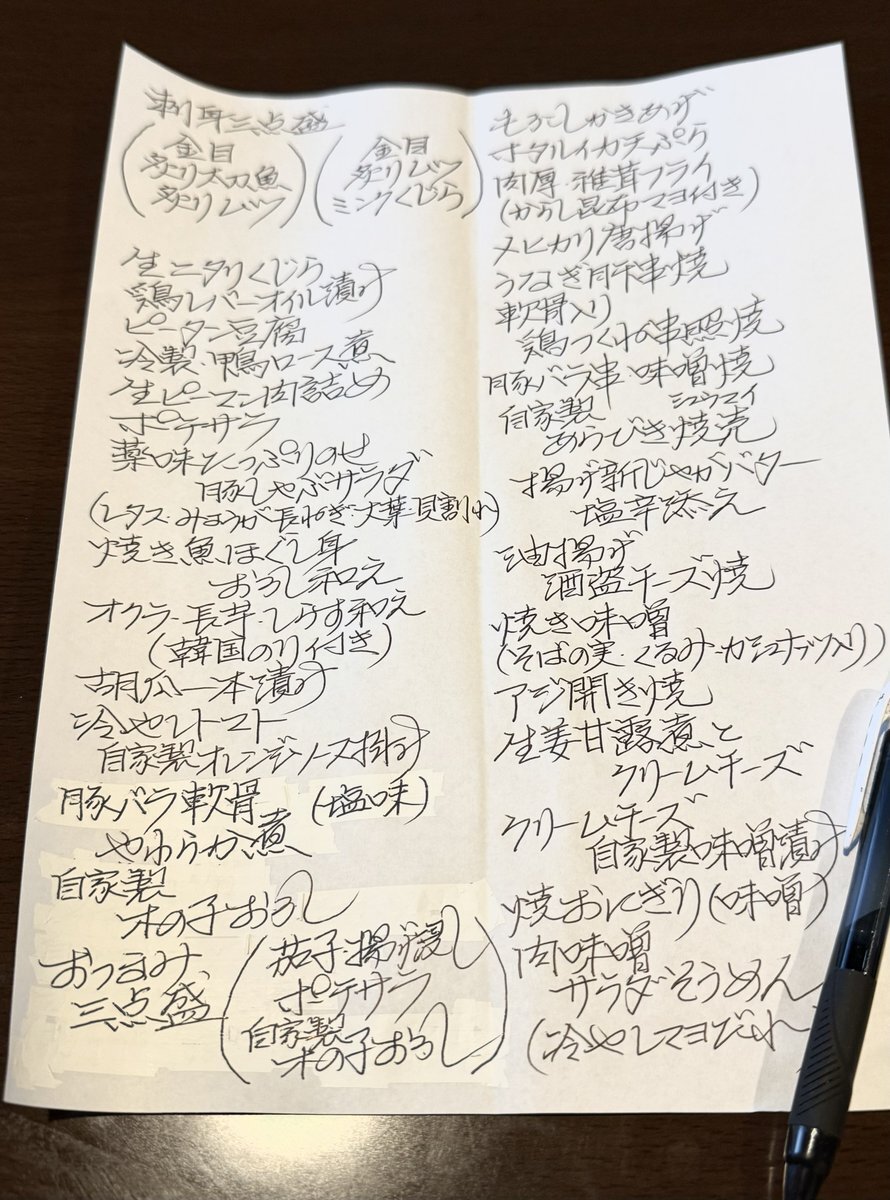 刺身三点盛
(金目
炙り太刀魚
炙りムツ)
(金目
炙りムツ
ミンクくじら)
生ニタリくじら
鶏レバーオイル漬け
ピータン豆腐
冷製・鴨ロース煮
生ピーマン肉詰め
ポテサラ
薬味たっぷりのせ
豚しゃぶサラダ
(レタス・みょうが・長ねぎ・大葉・貝割れ)
焼き魚ほぐし身
おろし和え
オクラ・長芋・しらす和え
(韓国のり付き)
胡瓜一本漬け
冷やしトマト
自家製オレンジソース掛け
豚バラ軟骨 (塩味)
やわらか煮
自家製
木の子おろし
おつまみ
三点盛
(茄子揚げ浸し
ポテサラ
自家製
木の子おろし)
もろこしかきあげ
ホタルイカ天ぷら
肉厚・椎茸フライ
(からし昆布マヨ付き)
メヒカリ唐揚げ
うなぎ肝串焼
軟骨入り
鶏つくねの串照焼
豚バラ串・味噌焼
自家製 シュウマイ
あらびき焼売
揚げ新じゃがバター
塩辛添え
油揚げ
酒盗チーズ焼
焼き味噌
(そばの実・くるみ・カシュナッツ入り)
アジ開き焼
生姜甘露煮と
クリームチーズ
クリームチーズ
自家製味噌漬け
焼おにぎり(味噌)
肉味噌
サラダそうめん
(冷やしマヨだれ)